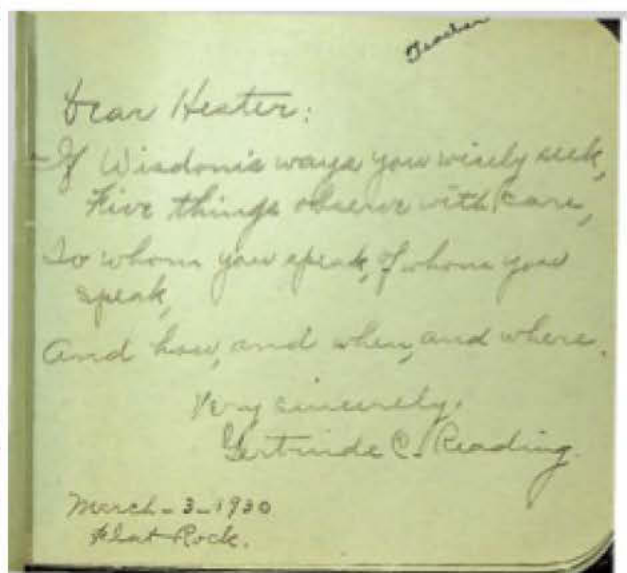 Teacher
Dear Hester:
If Wisdom's ways you wisely seek,
Five things observe with care,
To whom you speak, of whom you
speak,
And how, and when, and where.
Very sincerely,
Gertrude C. Reading.
March-3-1930
Flat Rock.